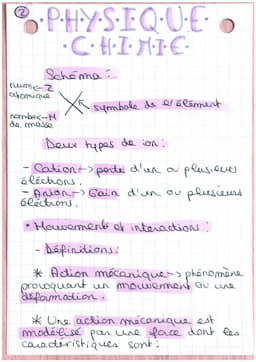 ②
P.H.Y.S.I.Q.U.E.
.C.H.I.M.I.E.
Schéma :
num <- Z
atomique
X <- symbole de l'élément
nombre <- A
de masse
Deux types de ion :
- Cation -> perte d'un ou plusieurs
éléctrons.
- Anion -> Gain d'un ou plusieurs
éléctrons.
• Mouvements et interactions :
- Définitions :
* Action mécanique -> phénomène
provoquant un mouvement ou une
déformation.
* Une action mécanique est
modélisé par une force dont les
caractéristiques sont :